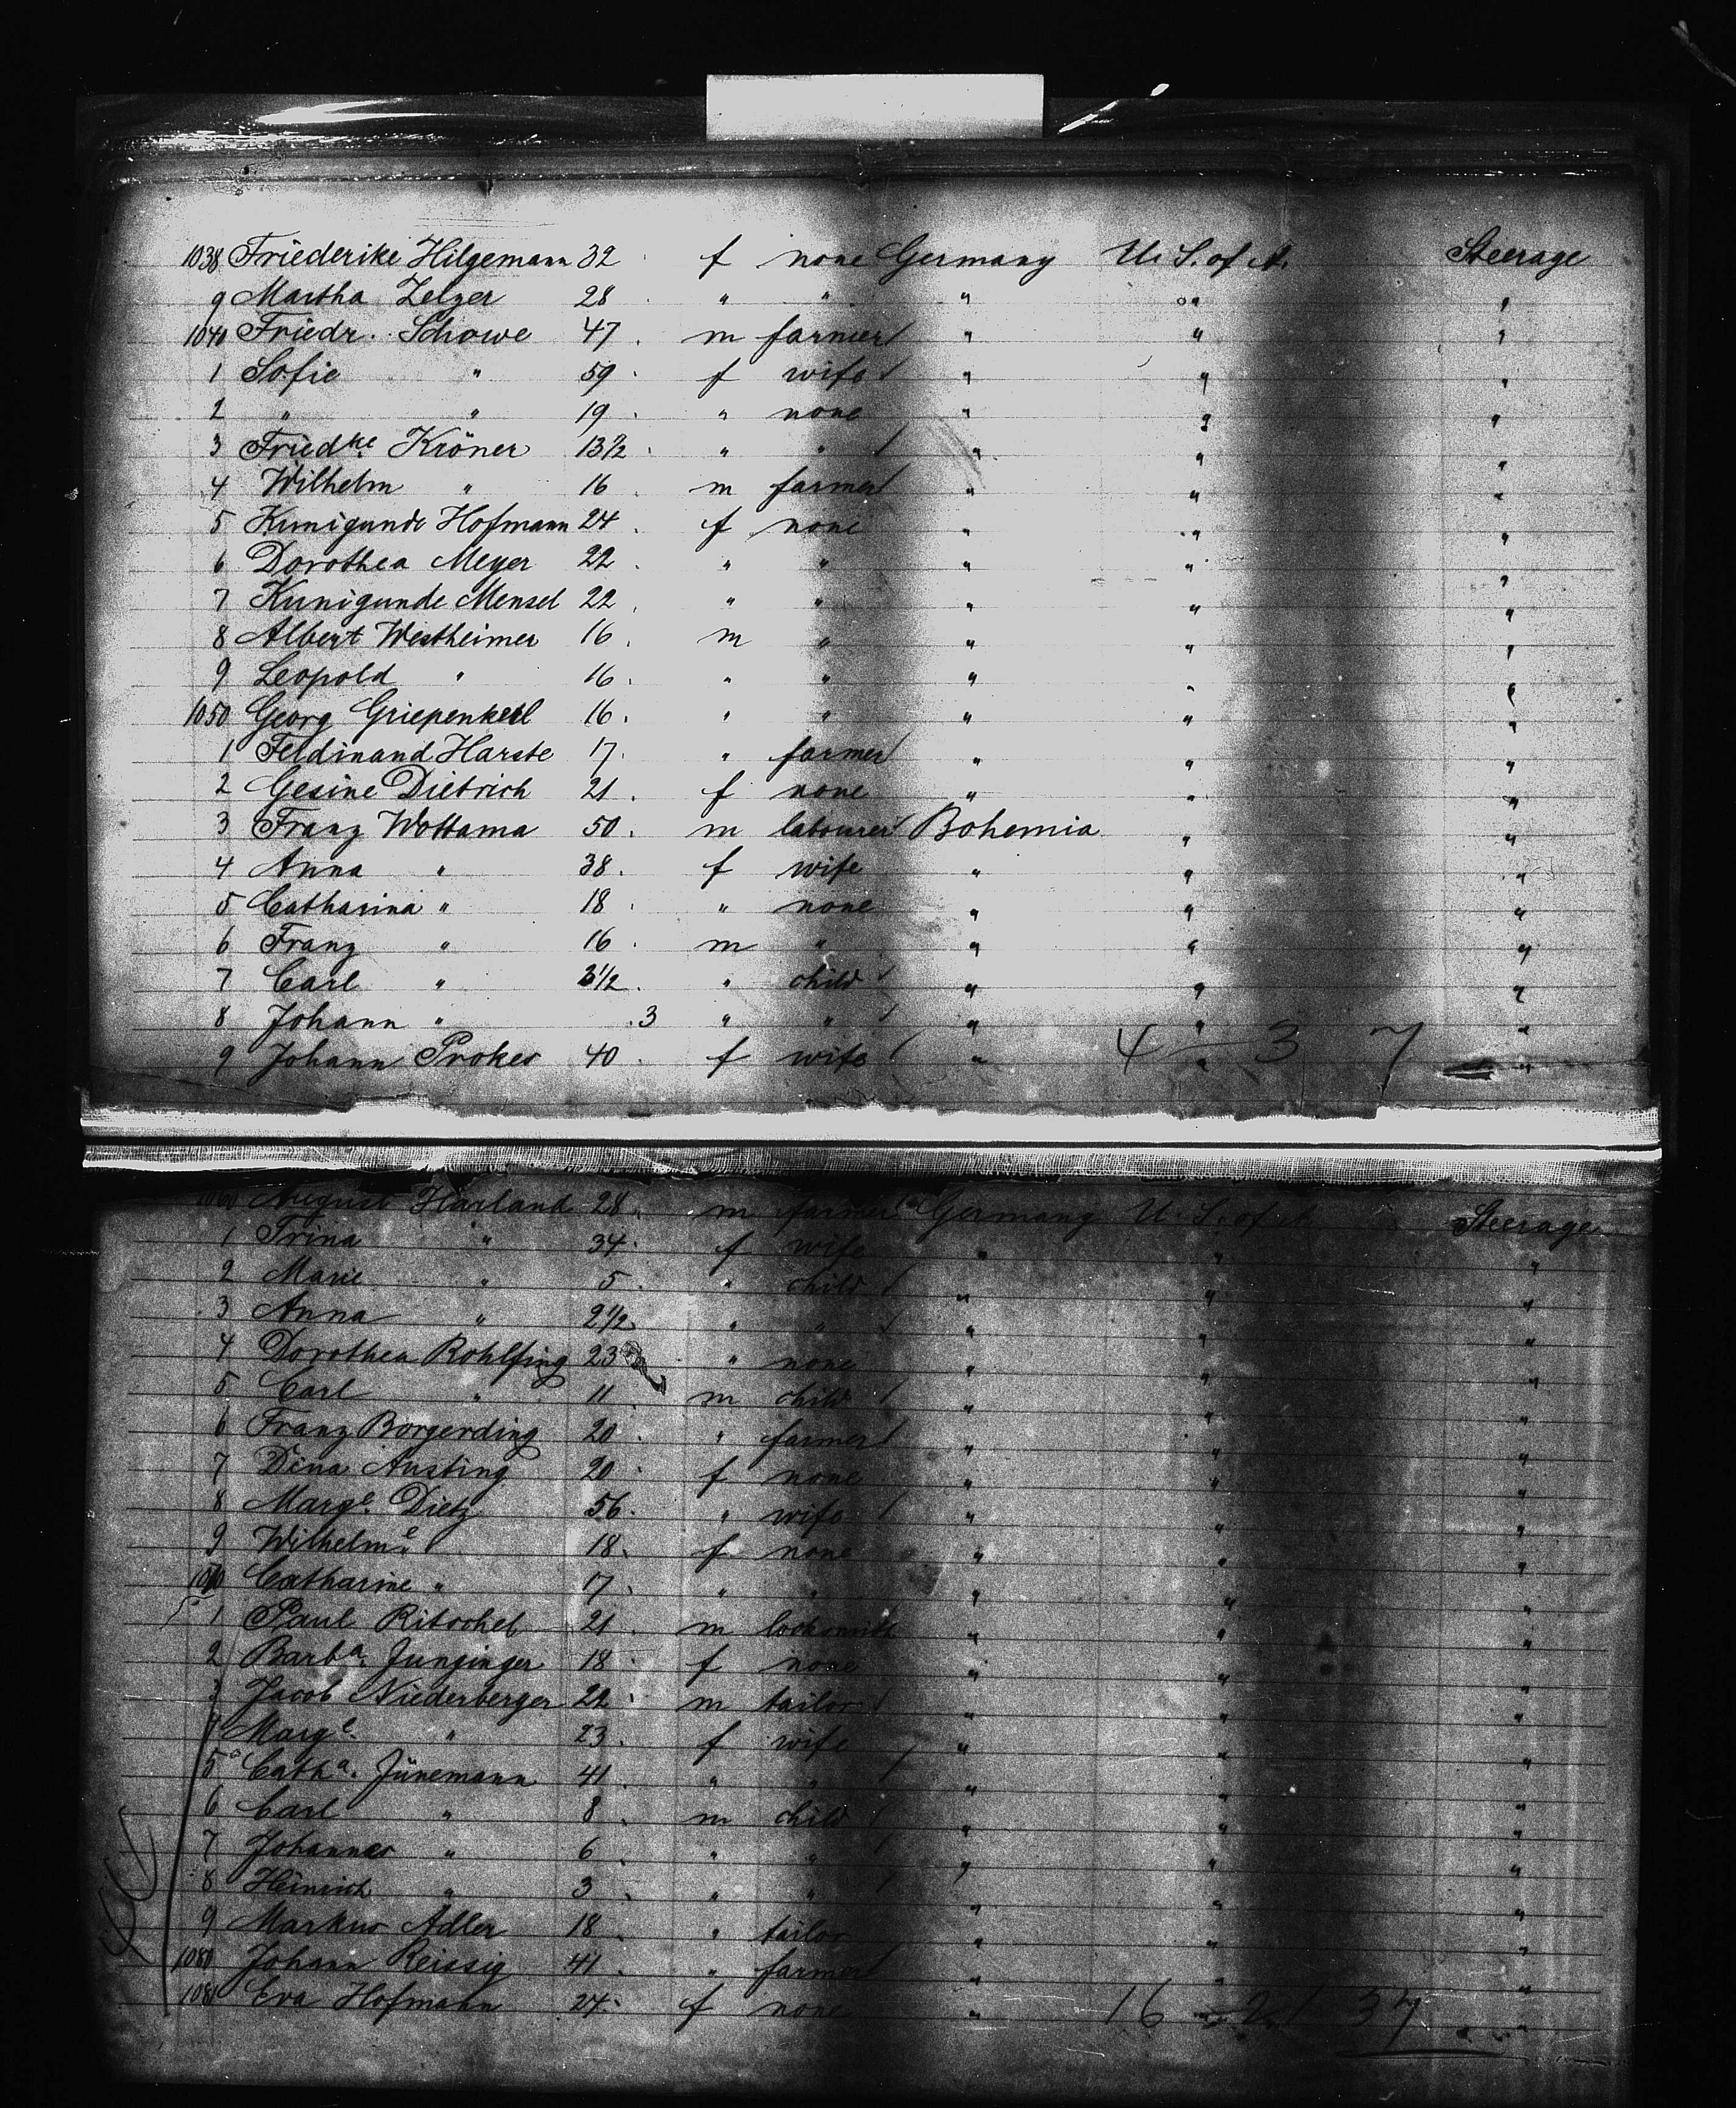 1038 Friederike Hilgemann 32 f none Germany U. S. of A. Steerage
9 Martha Zelger 28 " " " " "
1040 Friedr. Schowe 47 m farmer " " "
1 Sofie " 59 f wife " " "
2 " " 19 " none " " "
3 Friedke Kröner 13 1/2 " " " " "
4 Wilhelm " 16 m farmer " " "
5 Kunigunde Hofmann 24 f none " " "
6 Dorothea Meyer 22 " " " " "
7 Kunigunde Mensel 22 " " " " "
8 Albert Westheimer 16 m " " " "
9 Leopold " 16 " " " " "
1050 Georg Griepenkerl 16 " " " " "
1 Feldinand Harste 17 " farmer " " "
2 Gesine Dietrich 21 f none " " "
3 Franz Wottama 50 m labourer Bohemia " "
4 Anna " 38 f wife " " "
5 Catharina " 18 " none " " "
6 Franz " 16 m " " " "
7 Carl " 3 1/2 " child " " "
8 Johann " 3 " " " " "
9 Johann Prokes 40 f wife " " "
4 3 7
1060 August Harland 28 m farmer Germany U. S. of A. Steerage
1 Trina " 34 f wife " " "
2 Marie " 5 " child " " "
3 Anna " 2 1/2 " " " " "
4 Dorothea Rohlfing 23 " none " " "
5 Carl " 11 m child " " "
6 Franz Borgerding 20 " farmer " " "
7 Dina Austing 20 f none " " "
8 Marge. Dietz 56 " wife " " "
9 Wilhelme " 18 f none " " "
1070 Catharine " 17 " " " " "
1 Paul Ritschel 21 m locksmith " " "
2 Barba. Junginger 18 f none " " "
3 Jacob Niederberger 22 m tailor " " "
4 Marge. " 23 f wife " " "
5 Catha. Jünemann 41 " " " " "
6 Carl " 8 m child " " "
7 Johannes " 6 " " " " "
8 Heinrich " 3 " " " " "
9 Markus Adler 18 " tailor " " "
1080 Johann Reissig 41 " farmer " " "
1081 Eva Hofmann 24 f none " " "
16 21 37